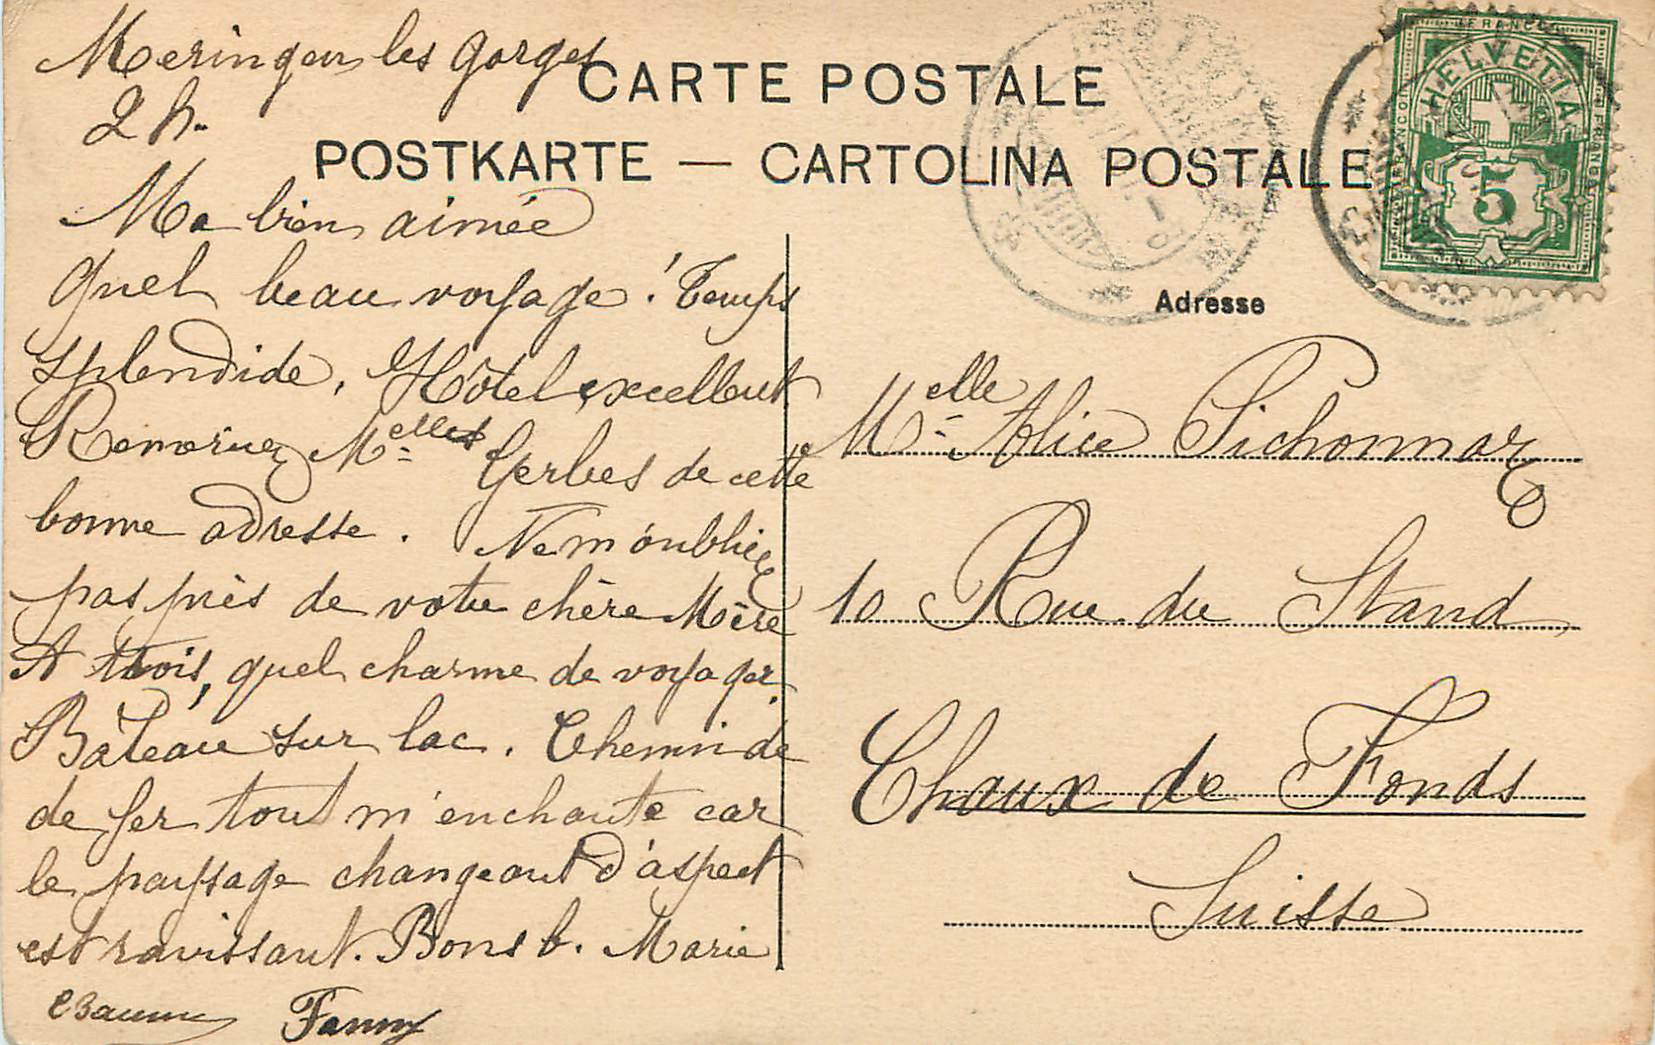 Meringen les gorges
2 h.
CARTE POSTALE
POSTKARTE — CARTOLINA POSTALE
Ma bien aimée
quel beau voyage ! Temps
splendide, Hôtel excellent
Remerciez Melles Gerbes de cette
bonne adresse. Ne m'oubliez
pas près de votre chère Mère
A trois, quel charme de voyager.
Bateau sur lac. Chemin de
de fer tout m'enchante car
le paysage changeant d'aspect
est ravissant. Bons b. Marie
Fanny
FRANCO
HELVETIA
5
Adresse
Melle Alice Pichonnaz
10 Rue du Stand
Chaux de Fonds
Suisse